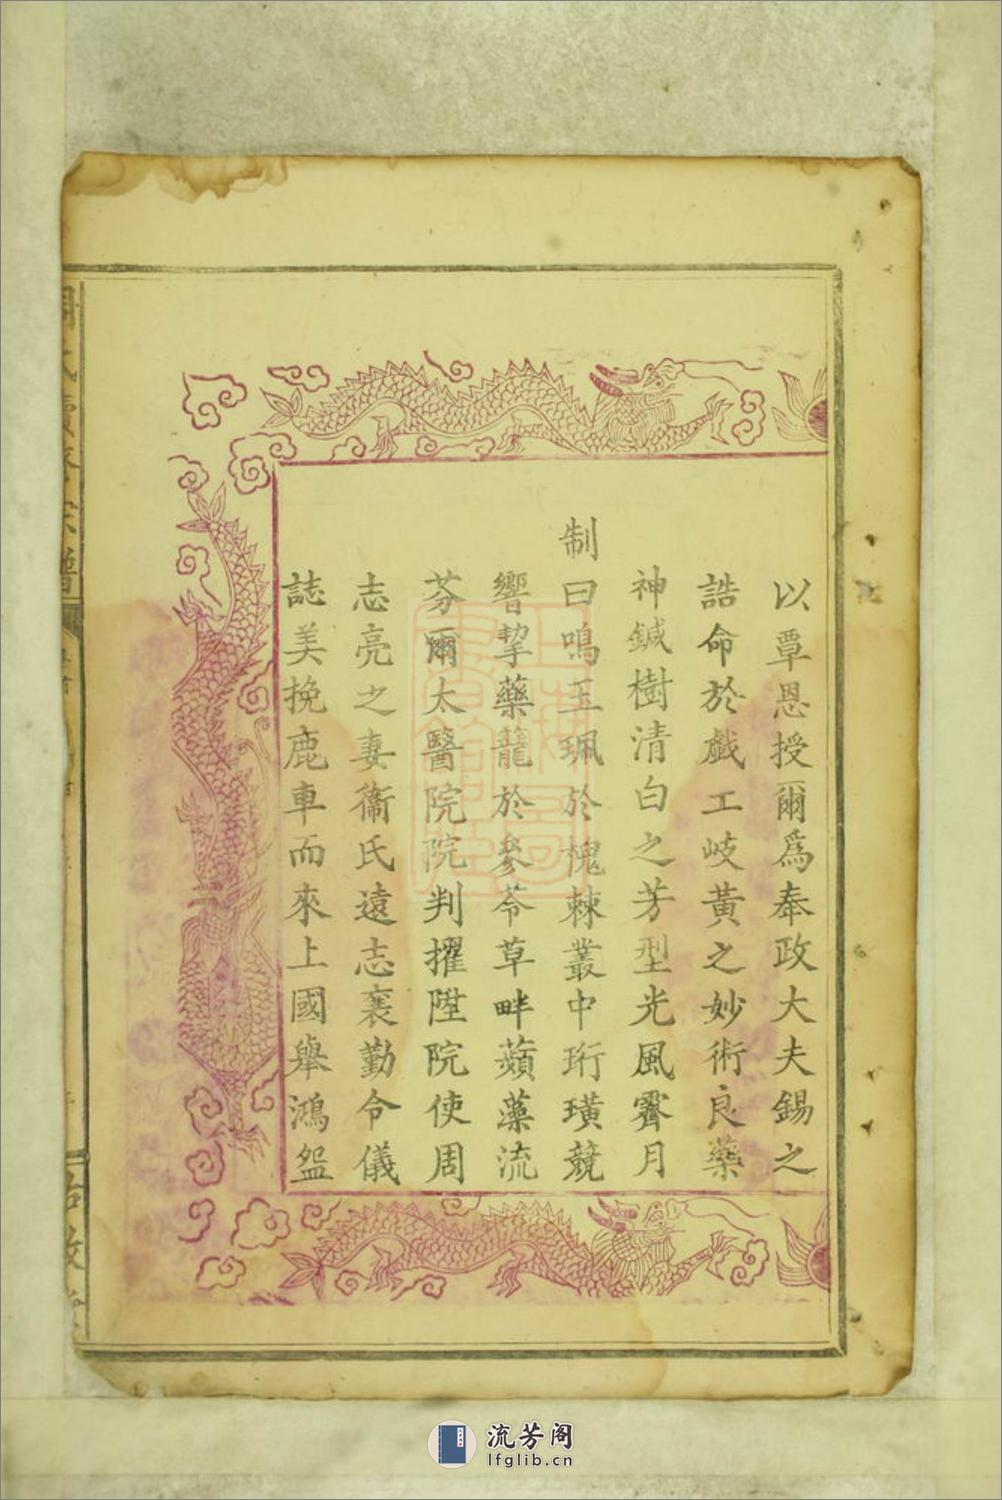 以覃恩授爾爲奉政大夫錫之
誥命於戯工岐黃之妙術良藥
神鍼樹清白之芳型光風霽月
制曰鳴玉珮於槐棘叢中珩璜競
響挈藥籠於參苓草畔蘋藻流
芬爾太醫院院判擢陞院使周
志亮之妻衞氏遠志襄勤令儀
誌美挽鹿車而來上國舉鴻盌
流芳阁
lfglib.cn